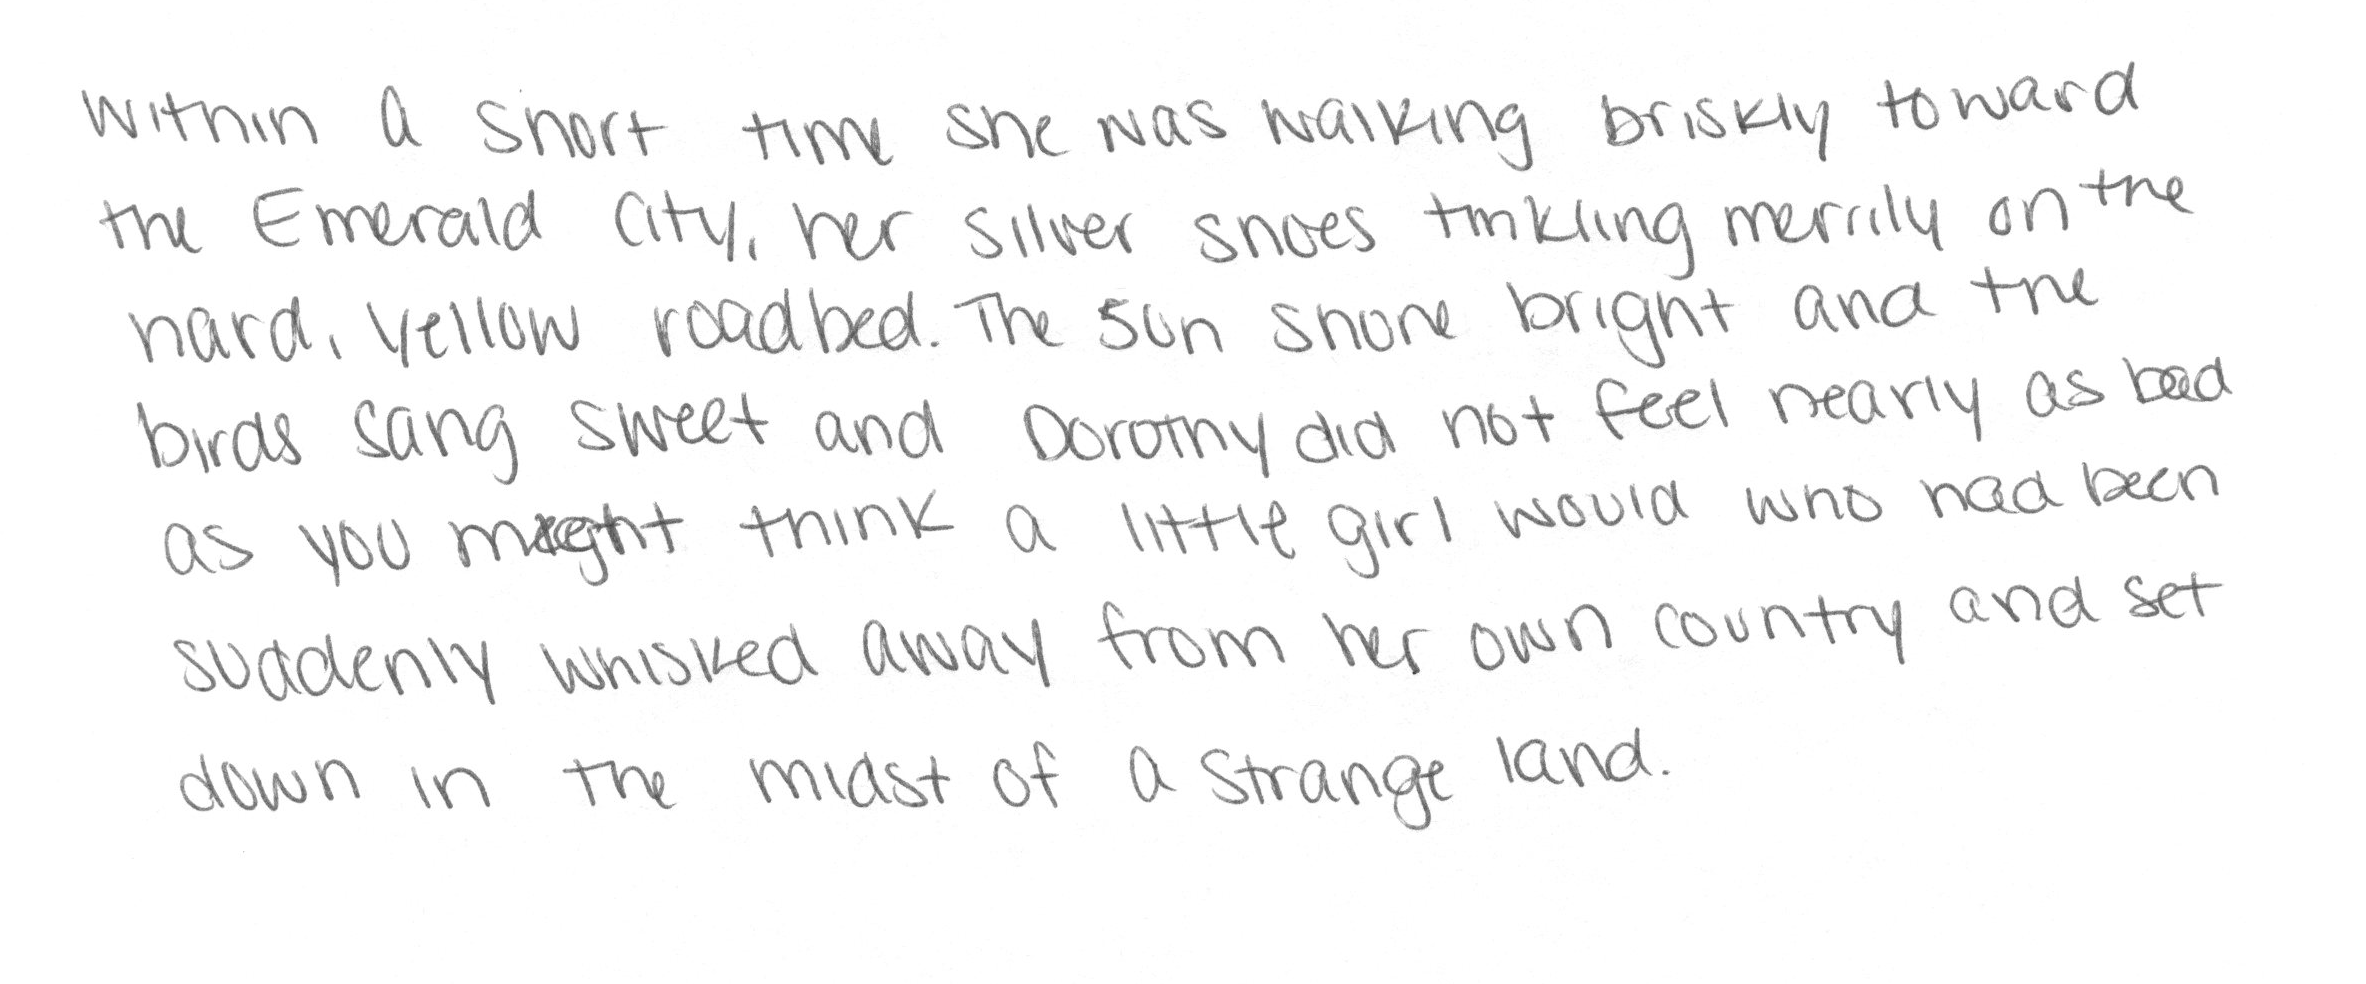 Within a short time she was walking briskly toward
the Emerald City, her silver shoes tinkling merrily on the
hard, yellow roadbed. The sun shone bright and the
birds sang sweet and Dorothy did not feel nearly as bad
as you might think a little girl would who had been
suddenly whisked away from her own country and set
down in the midst of a strange land.